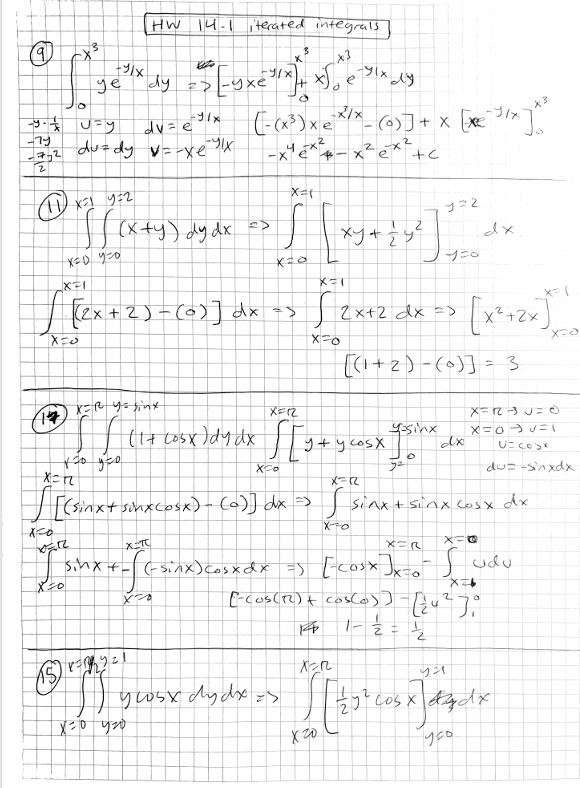 HW 14.1 iterated integrals
9 ∫_0^{x^3} ye^{-y/x} dy => [-yxe^{-y/x}]_0^{x^3} + x∫_0^{x^3} e^{-y/x} dy
-y·1/x u=y dv=e^{-y/x} [-(x^3)xe^{-x^3/x} - (0)] + x [xe^{-y/x}]_0^{x^3}
-7y du=dy v=-xe^{-y/x} -x^4e^{-x^2} - x^2e^{-x^2} + c
-7y^2/2
11 ∫_{x=0}^{x=1} ∫_{y=0}^{y=2} (x+y) dy dx => ∫_{x=0}^{x=1} [xy + 1/2 y^2]_{y=0}^{y=2} dx
∫_{x=0}^{x=1} [(2x+2)-(0)] dx => ∫_{x=0}^{x=1} 2x+2 dx => [x^2+2x]_{x=0}^{x=1}
[(1+2)-(0)] = 3
∫_{x=0}^{x=π} ∫_{y=0}^{y=sinx} (1+cosx) dy dx ∫_{x=0}^{x=π} [y + y cosx]_{y=0}^{y=sinx} dx
x=π → u=0
x=0 → u=1
u=cosx
du=-sinxdx
∫_{x=0}^{x=π} [(sinx+sinxcosx)-(0)] dx => ∫_{x=0}^{x=π} sinx + sinx cosx dx
∫_{x=0}^{x=π} sinx + -∫_{x=0}^{x=π} (-sinx)cosxdx => [-cosx]_{x=0}^{x=π} - ∫ udu
[-cos(π)+cos(0)] - [1/2 u^2]_1^0
1 - 1/2 = 1/2
15 ∫_{x=0} ∫_{y=0}^{y=1} y cosx dy dx => ∫_{x=0}^{x=π} [1/2 y^2 cosx]_{y=0}^{y=1} dx